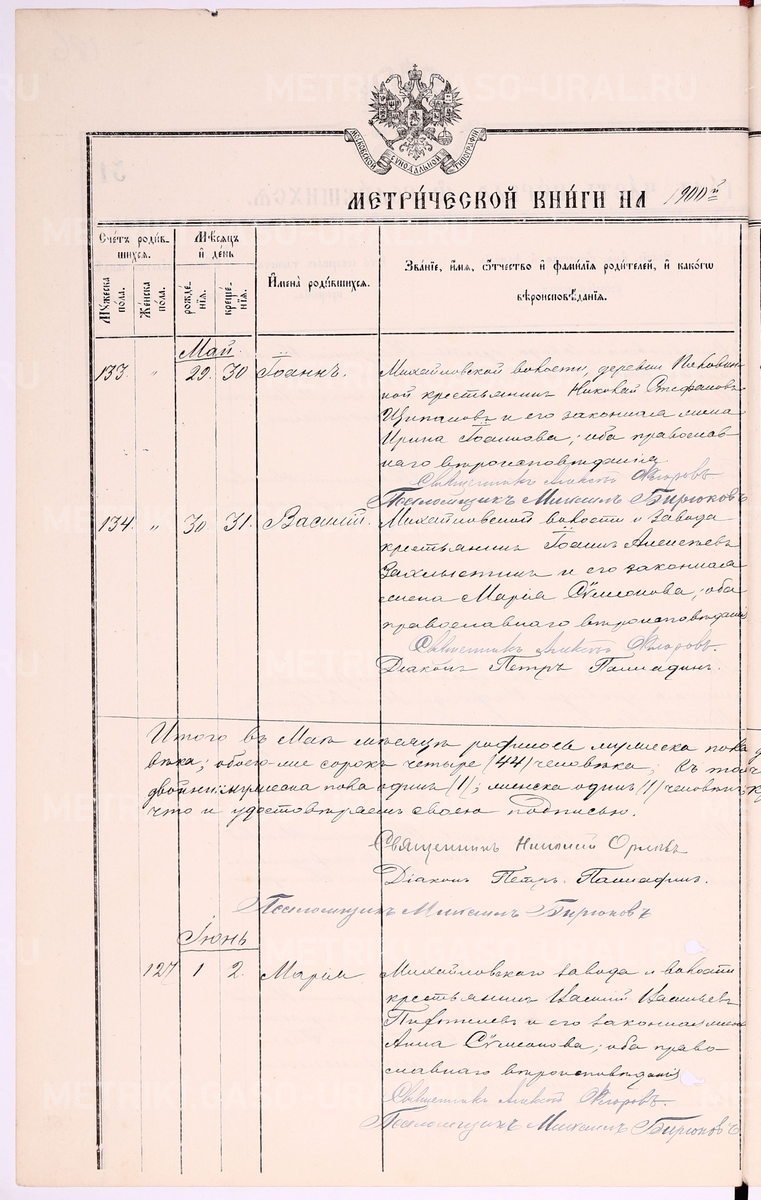 МОСКОВСКОЙ СѴНОДАЛЬНОЙ ТИПОГРАФІИ
МЕТРИ́ЧЕСКОЙ КНИ́ГИ НА 1900 й
Сче́тъ роди́в-
шихся.
Мѣ́сяцъ
и҆ де́нь
И҆мена̀ роди́вшихся.
Зва́нїе, и҆́мя, ѻ҆́тчество и҆ фами́лїя роди́телей, и҆ како́гѡ
вѣроисповѣ́данїя.
Мꙋ́жеска по́ла.
Же́нска по́ла.
рожде́нїя.
креще́нїя.
Май.
133 " 29. 30 Іоаннъ.
Михайловской волости, деревни
крестьянинъ Николай Стефановъ
и его законная жена
Ирина Іоаннова; оба православ
наго вѣроисповѣданія
Священникъ Ѳлоровъ
Псаломщикъ Михаилъ Бирюковъ
134. " 30 31. Василій.
Михайловской волости и завода
крестьянинъ Іоаннъ Алексѣевъ
и его законная
жена Марія Сѵмеонова; оба
православнаго вѣроисповѣданія
Священникъ Ѳлоровъ.
Діаконъ Петръ
Итого въ Маѣ мѣсяцѣ родилось мужеска пола
обоего сорокъ четыре (44) человѣка; въ том
двойни: мужеска пола одинъ (1); женска одинъ (1)
что и удостовѣряемъ своею подписью.
Священникъ Николай Орловъ
Діаконъ Петръ
Псаломщикъ Михаилъ Бирюковъ
Іюнь
127 1 2. Марія
Михайловскаго завода и волости
крестьянинъ Василій Васильевъ
и его законная жена
Анна Сѵмеонова; оба право-
славнаго вѣроисповѣданія
Священникъ Ѳлоровъ.
Псаломщикъ Михаилъ Бирюковъ